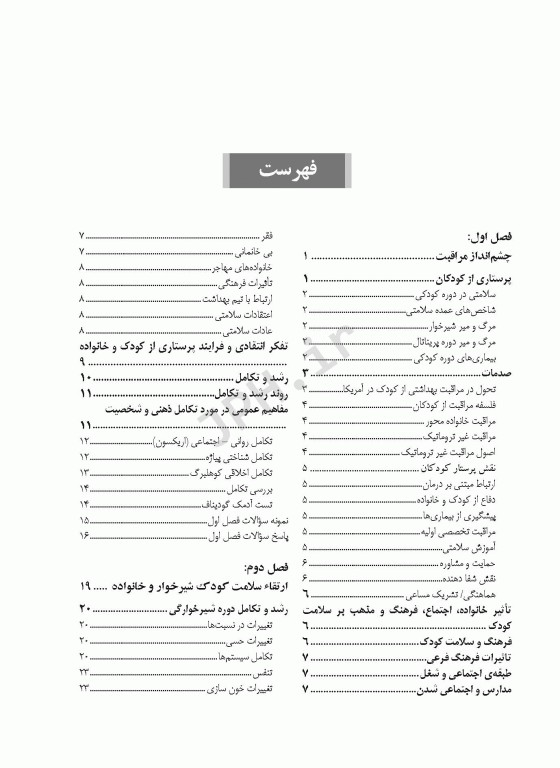 فهرست
فصل اول:
چشم‌انداز مراقبت ........ ۱
پرستاری از کودکان ........ ۱
سلامتی در دوره کودکی ........ ۲
شاخص‌های عمده سلامتی ........ ۲
مرگ و میر شیرخوار ........ ۲
مرگ و میر دوره پریناتال ........ ۲
بیماری‌های دوره کودکی ........ ۲
صدمات ........ ۳
تحول در مراقبت بهداشتی از کودک در آمریکا ........ ۳
فلسفه مراقبت از کودکان ........ ۴
مراقبت خانواده محور ........ ۴
مراقبت غیر تروماتیک ........ ۴
اصول مراقبت غیر تروماتیک ........ ۴
نقش پرستار کودکان ........ ۵
ارتباط مبتنی بر درمان ........ ۵
دفاع از کودک و خانواده ........ ۵
پیشگیری از بیماری‌ها ........ ۵
مراقبت تخصصی اولیه ........ ۵
آموزش سلامتی ........ ۵
حمایت و مشاوره ........ ۶
نقش شفا دهنده ........ ۶
هماهنگی/ تشریک مساعی ........ ۶
تأثیر خانواده، اجتماع، فرهنگ و مذهب بر سلامت
کودک ........ ۶
فرهنگ و سلامت کودک ........ ۶
تاثیرات فرهنگ فرعی ........ ۷
طبقه‌ی اجتماعی و شغل ........ ۷
مدارس و اجتماعی شدن ........ ۷
فقر ........ ۷
بی خانمانی ........ ۷
خانواده‌های مهاجر ........ ۸
تأثیرات فرهنگی ........ ۸
ارتباط با تیم بهداشت ........ ۸
اعتقادات سلامتی ........ ۸
عادات سلامتی ........ ۸
تفکر انتقادی و فرایند پرستاری از کودک و خانواده
........ ۹
رشد و تکامل ........ ۱۰
روند رشد و تکامل ........ ۱۱
مفاهیم عمومی در مورد تکامل ذهنی و شخصیت
........ ۱۱
تکامل روانی – اجتماعی (اریکسون) ........ ۱۲
تکامل شناختی پیاژه ........ ۱۲
تکامل اخلاقی کوهلبرگ ........ ۱۳
بررسی تکامل ........ ۱۴
تست آدمک گودیناف ........ ۱۴
نمونه سؤالات فصل اول ........ ۱۵
پاسخ سؤالات فصل اول ........ ۱۶
فصل دوم:
ارتقاء سلامت کودک شیرخوار و خانواده ..... ۱۹
رشد و تکامل دوره شیرخوارگی ........ ۲۰
تغییرات در نسبت‌ها ........ ۲۰
تغییرات حسی ........ ۲۰
تکامل سیستم‌ها ........ ۲۰
تنفس ........ ۲۳
تغییرات خون سازی ........ ۲۳
JPH.ir